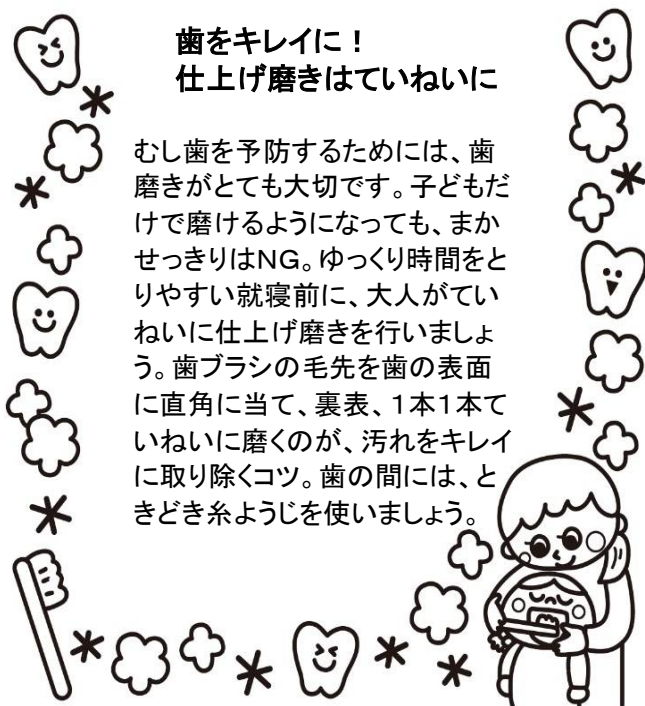 歯をキレイに！
仕上げ磨きはていねいに
むし歯を予防するためには、歯
磨きがとても大切です。子どもだ
けで磨けるようになっても、まか
せっきりはNG。ゆっくり時間をと
りやすい就寝前に、大人がてい
ねいに仕上げ磨きを行いましょ
う。歯ブラシの毛先を歯の表面
に直角に当て、裏表、1本1本て
いねいに磨くのが、汚れをキレイ
に取り除くコツ。歯の間には、と
きどき糸ようじを使いましょう。